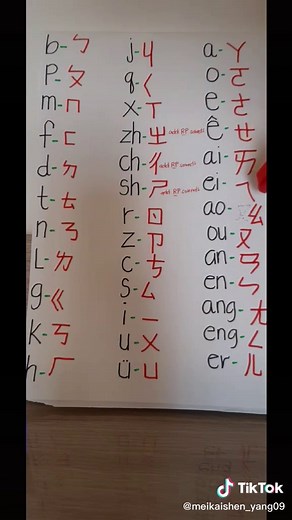 b-ㄅ
P-ㄆ
m-ㄇ
f-ㄈ
d-ㄉ
t-ㄊ
n-ㄋ
L-ㄌ
g-ㄍ
K-ㄎ
h-ㄏ
j-ㄐ
q-ㄑ
x-ㄒ
zh-ㄓ add
ch-ㄔ add
sh-ㄕ add
r-ㄖ
z-ㄗ
c-ㄘ
s-ㄙ
i-ㄧ
u-ㄨ
ü-ㄩ
a-ㄚ
o-ㄛ
e-ㄜ
ê-ㄝ
ai-ㄞ
ei-ㄟ
ao-ㄠ
ou-ㄡ
an-ㄢ
en-ㄣ
ang-ㄤ
eng-ㄥ
er-ㄦ
TikTok
@meikaishen_yang09